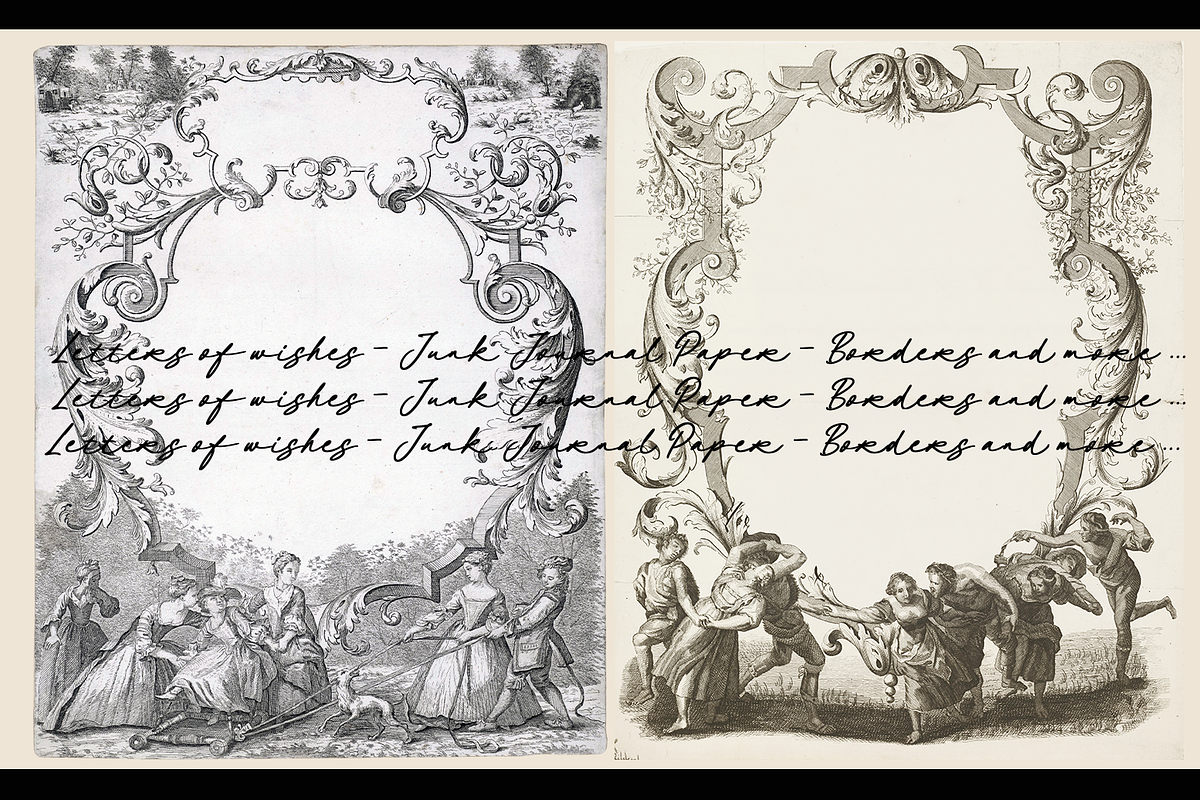 Letters of wishes - Junk Journal Paper - Borders and more ...
Letters of wishes - Junk Journal Paper - Borders and more ...
Letters of wishes - Junk Journal Paper - Borders and more ...